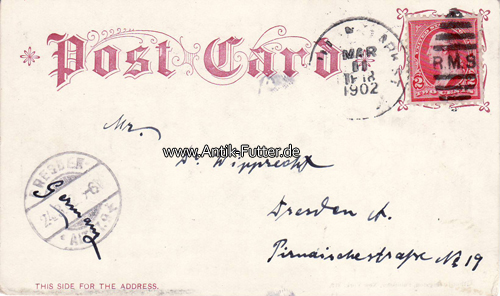 Post Card
MAR
11
1902
R.M.S
Mr.
www.Antik-Futter.de
Dr. Wipprecht
DRESDEN
Germany
Dresden A.
Pirnaischestraße № 19
THIS SIDE FOR THE ADDRESS.